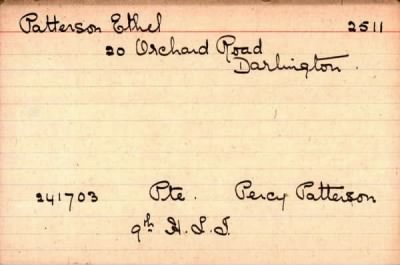 Patterson Ethel 2511
20 Orchard Road
Darlington.
241703 Pte. Percy Patterson
9th H.L.I.